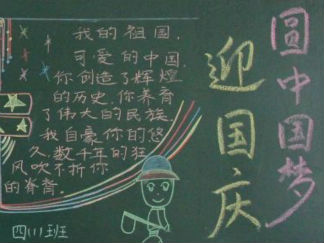 我的祖国,
可爱的中国,
你创造了辉煌
的历史,你养育
了伟大的民族,
我自豪你的悠
久,数千年的狂
风吹不折你
的脊背。
四(1)班
迎国庆
圆中国梦